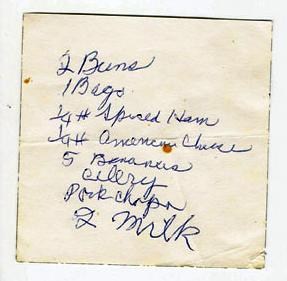 2 Buns
1 Bags
1/4 # Spiced Ham
1/4 # American Cheese
5 Bananas
Cellry
Pork chops
2 Milk